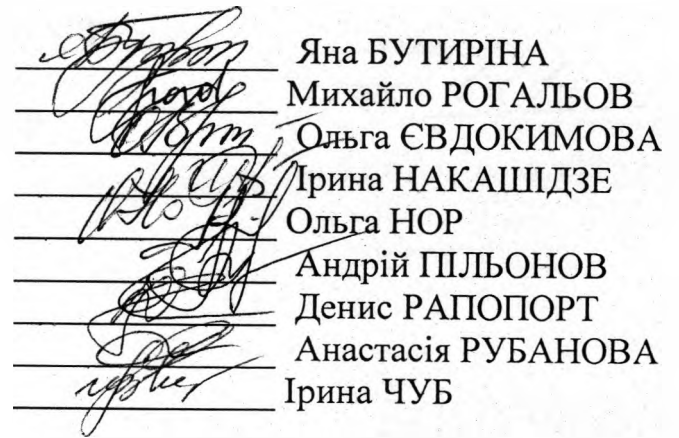 Яна БУТИРІНА
Михайло РОГАЛЬОВ
Ольга ЄВДОКИМОВА
Ірина НАКАШІДЗЕ
Ольга НОР
Андрій ПІЛЬОНОВ
Денис РАПОПОРТ
Анастасія РУБАНОВА
Ірина ЧУБ